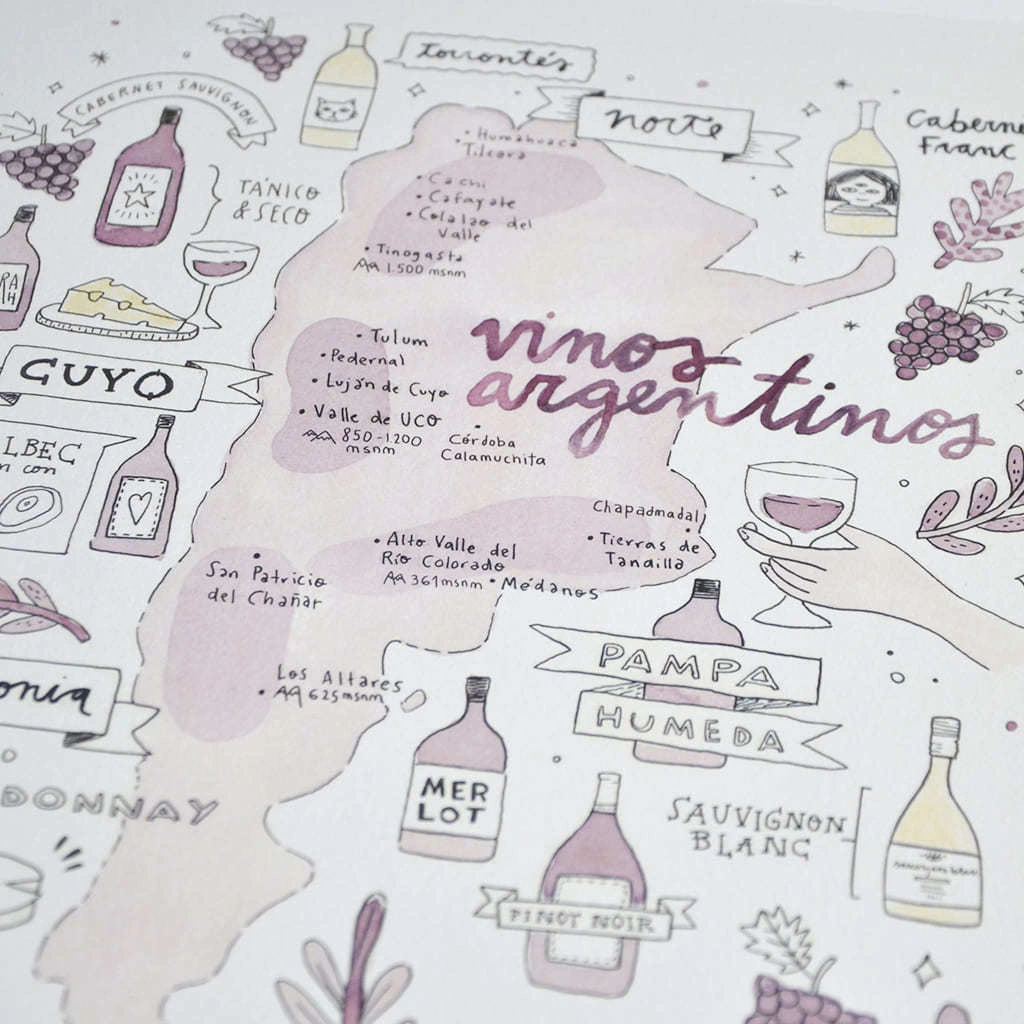 torrontés
CABERNET SAUVIGNON
norte
Caberne
Franc
TÁNICO
& SECO
• Humahuaca
Tilcara
• Cachi
• Cafayate
• Colalao del
Valle
• Tinogasta
1.500 msnm
RA
H
vinos
argentinos
• Tulum
• Pedernal
• Luján de Cuyo
• Valle de UCO
850-1.200
msnm
Córdoba
Calamuchita
CUYO
LBEC
n con
Chapadmalal
• Tierras de
Tandilla
• Alto Valle del
Río Colorado
361msnm
• Médanos
San Patricio
del Chañar
Los Altares
• 625msnm
onia
PAMPA
HUMEDA
MER
LOT
DONNAY
SAUVIGNON
BLANC
sauvignon blanc
PINOT NOIR